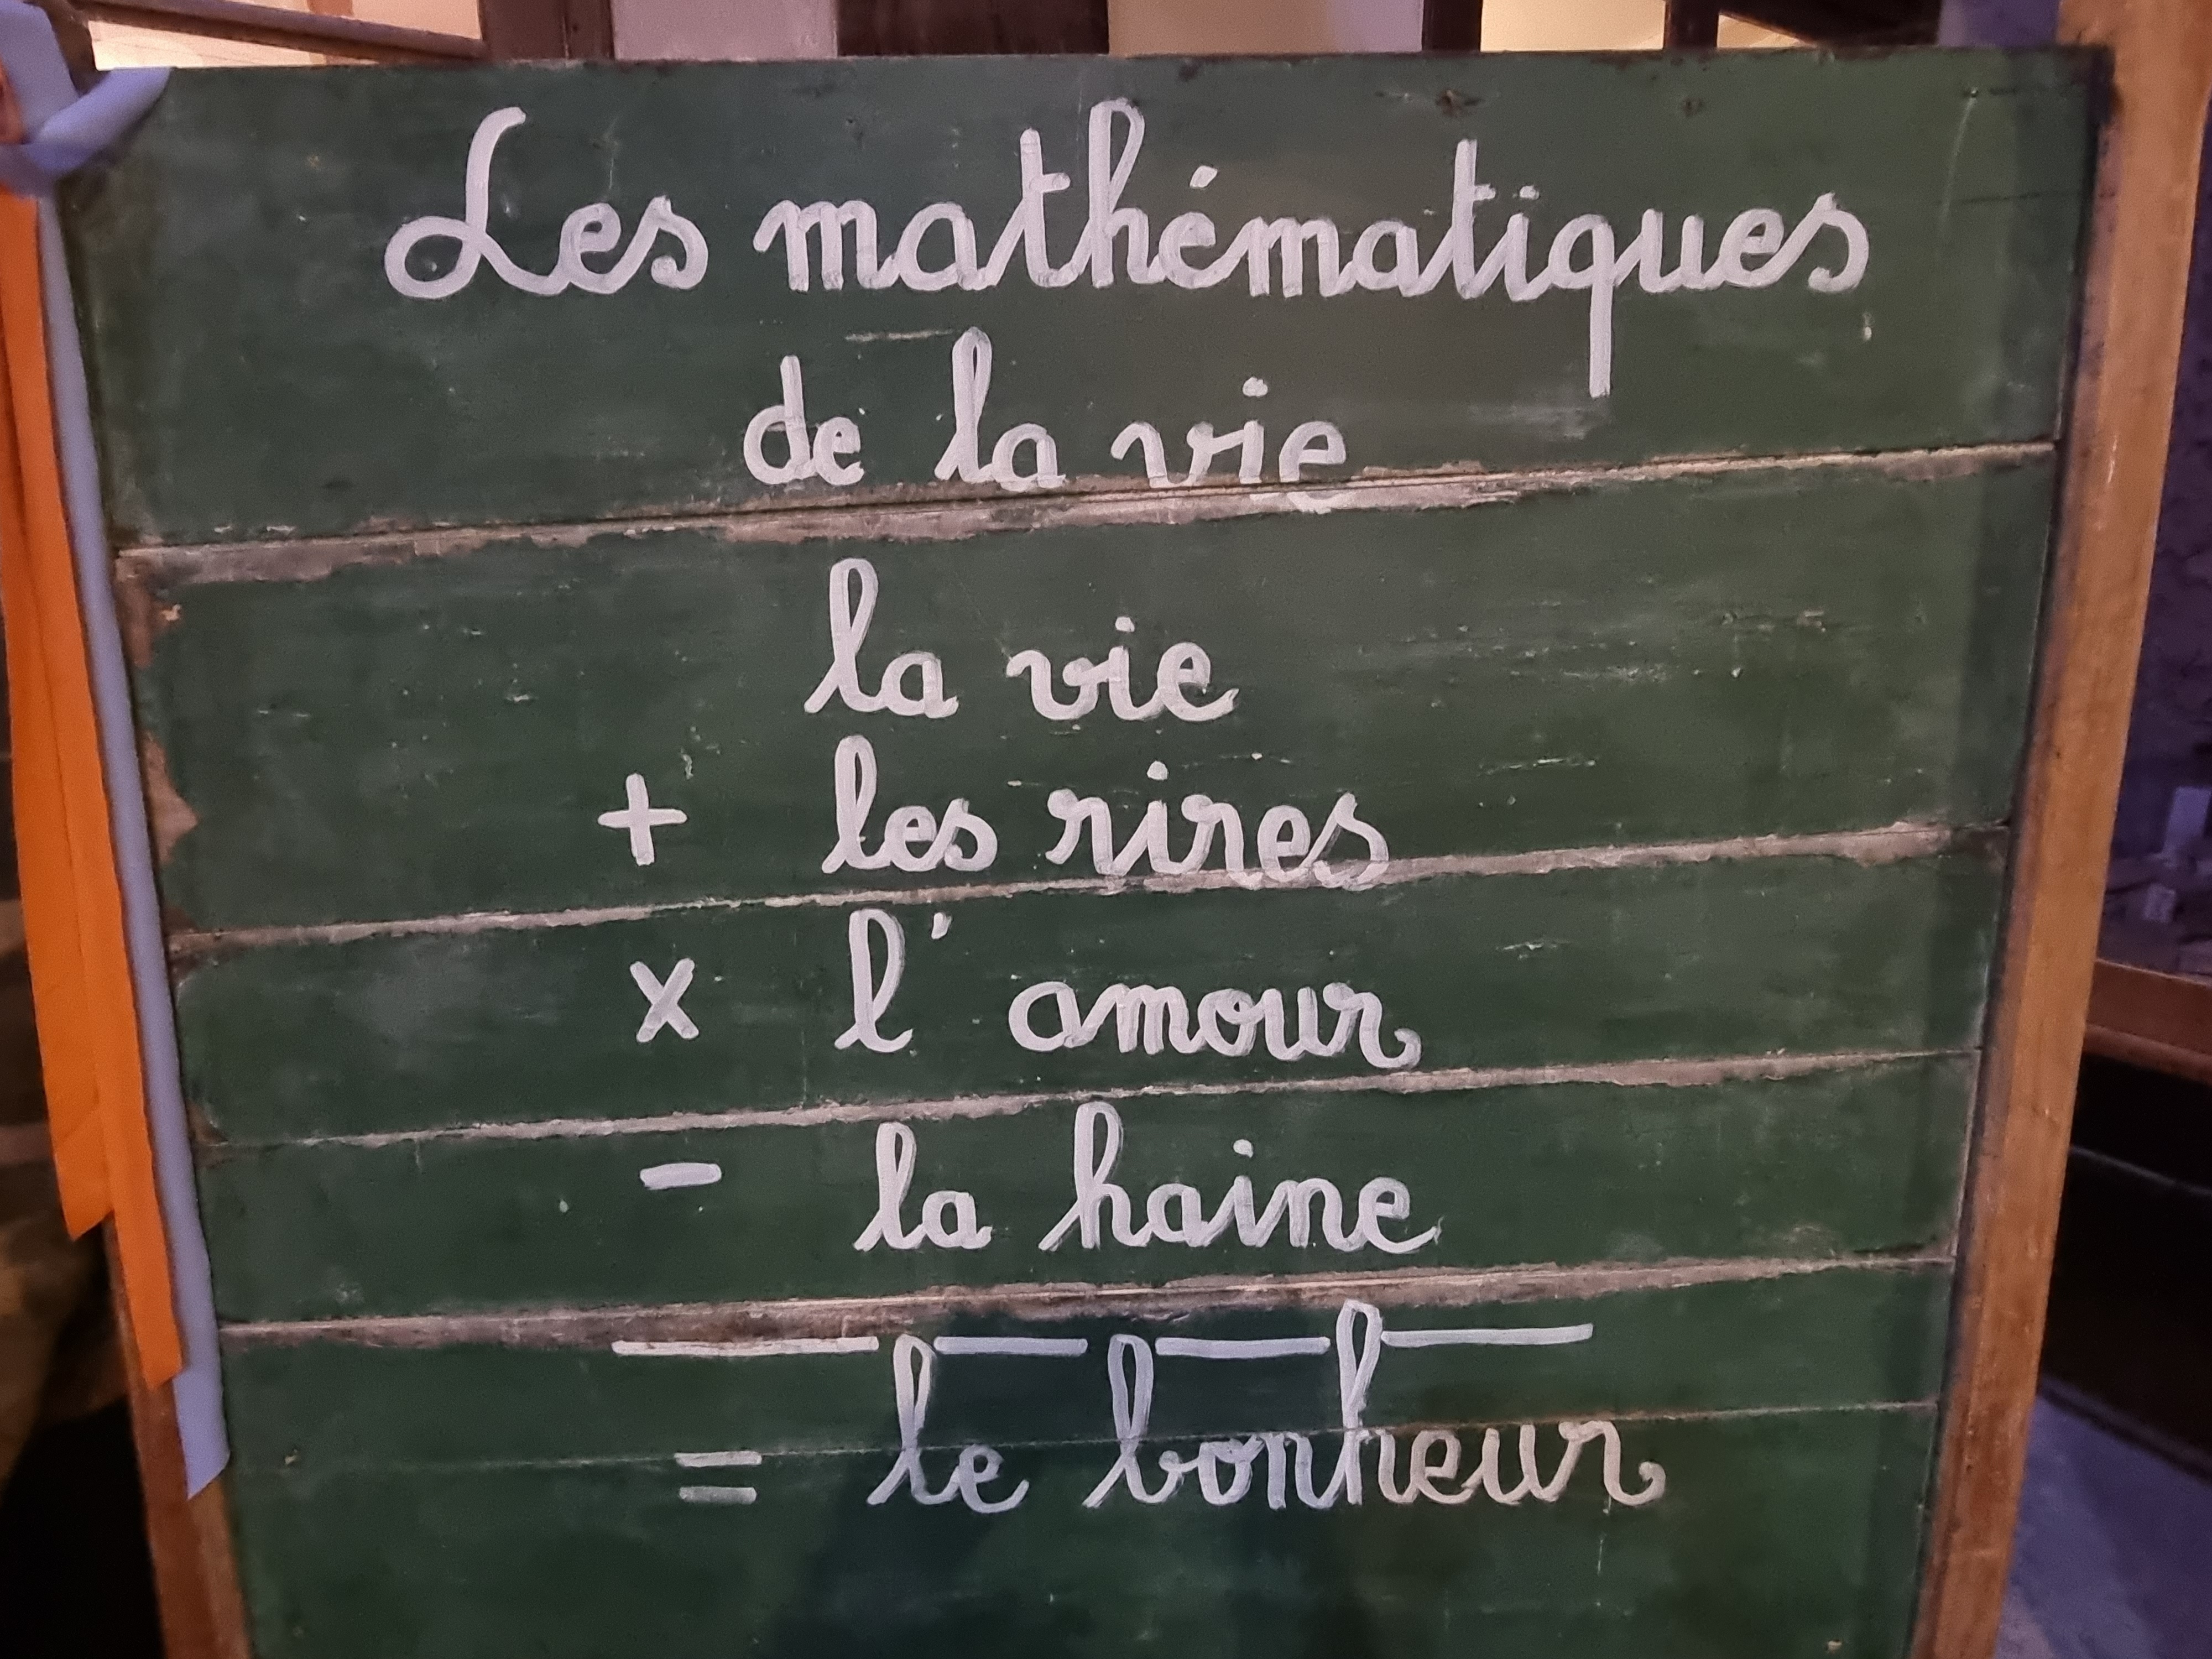 Les mathématiques
de la vie
la vie
+ les rires
x l'amour
- la haine
= le bonheur